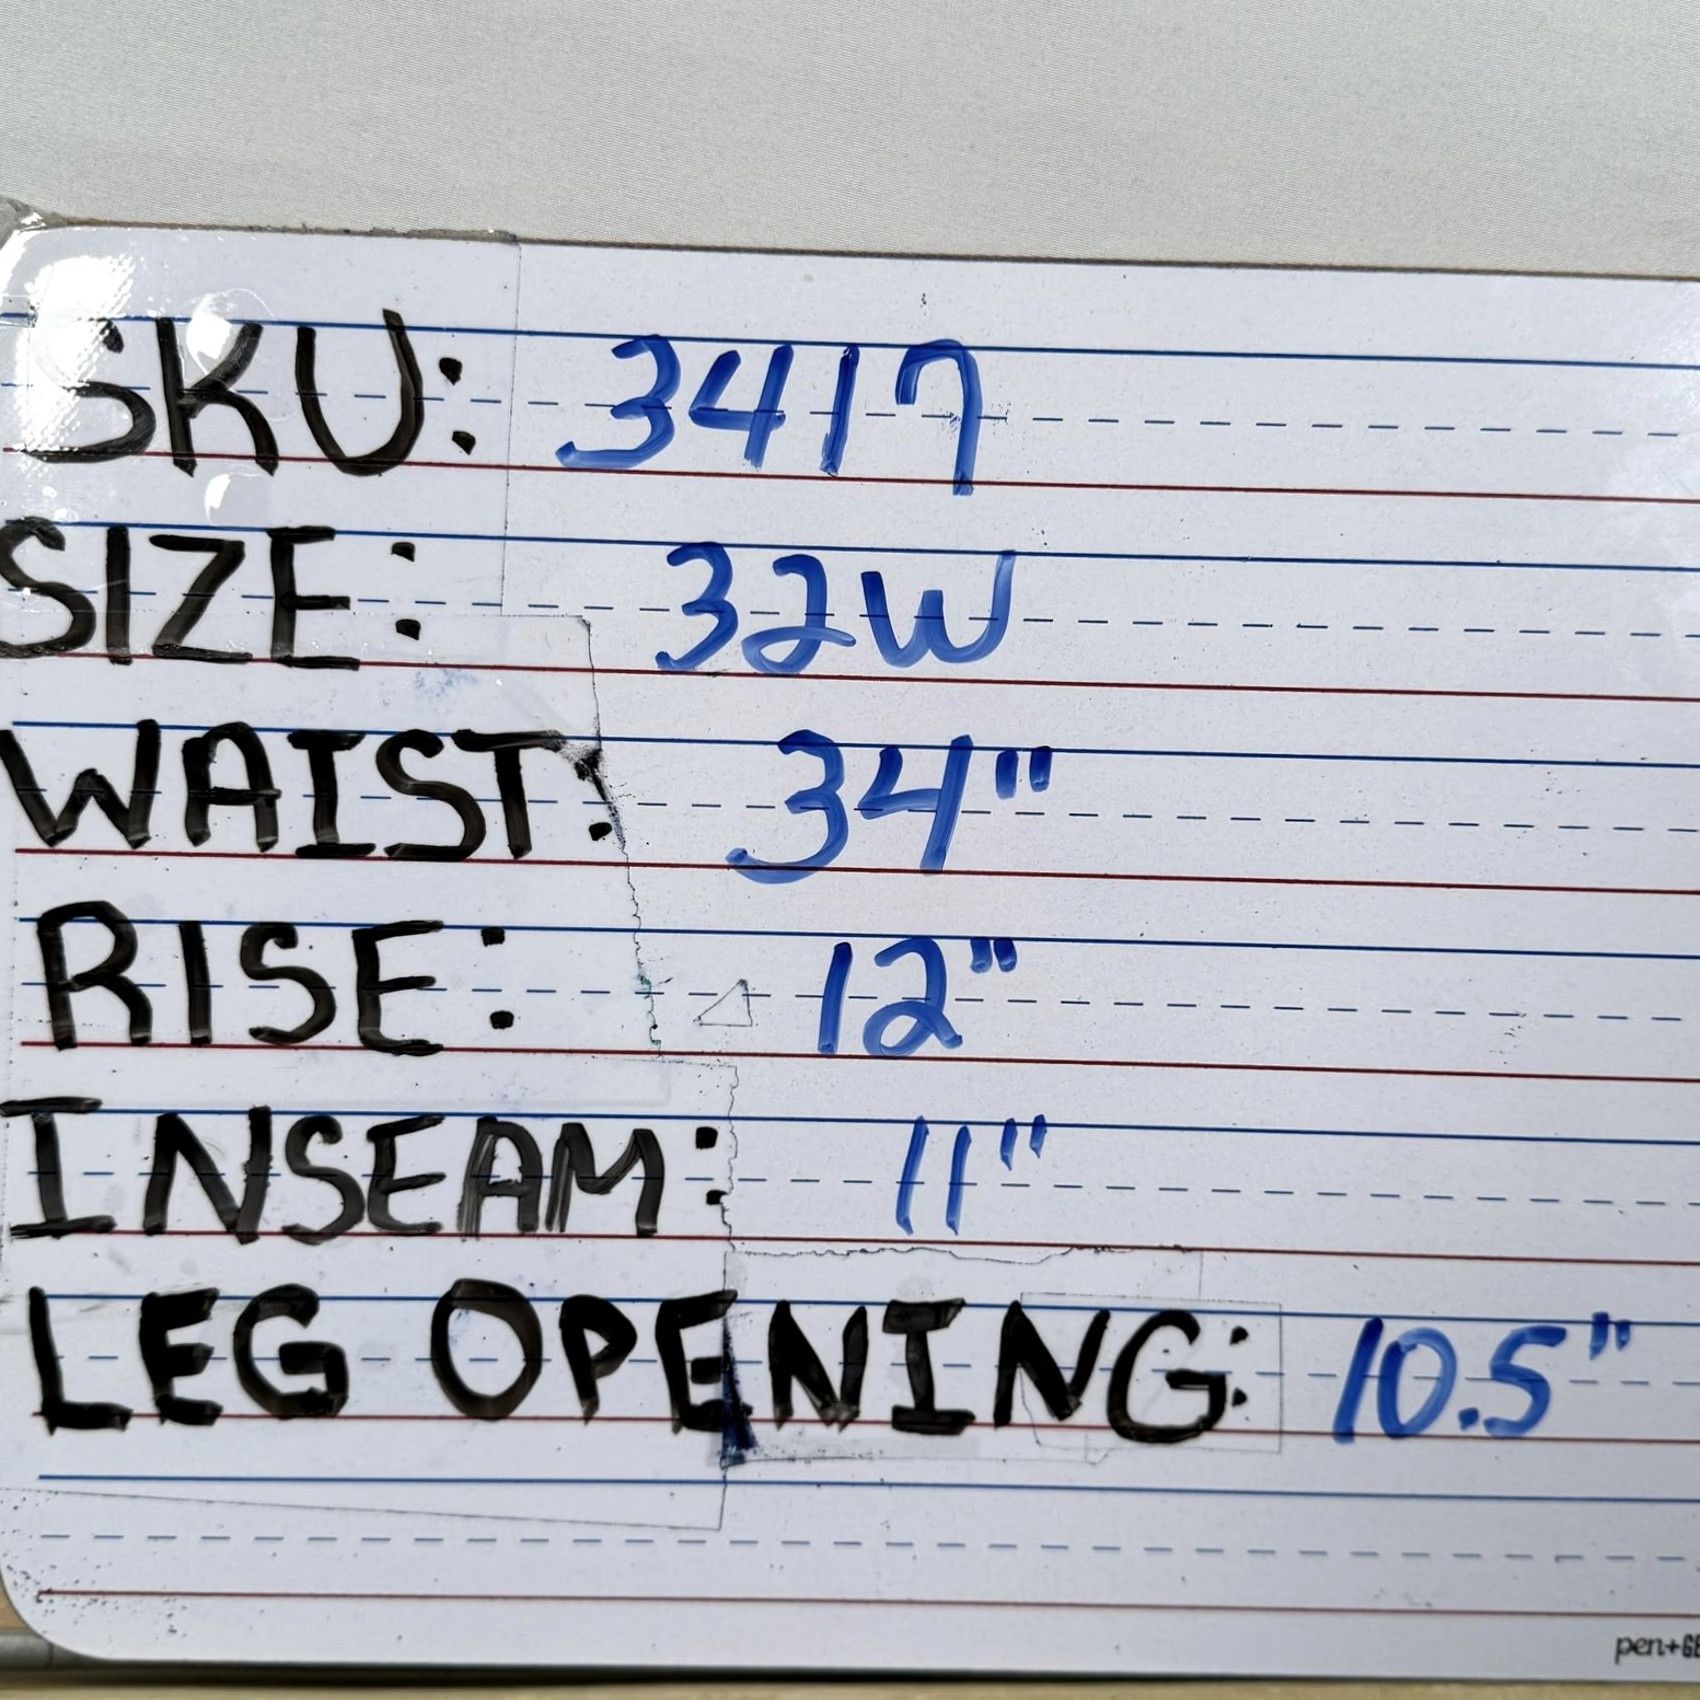 SKU: 3417
SIZE: 32W
WAIST: 34"
RISE: 12"
INSEAM: 11"
LEG OPENING: 10.5"